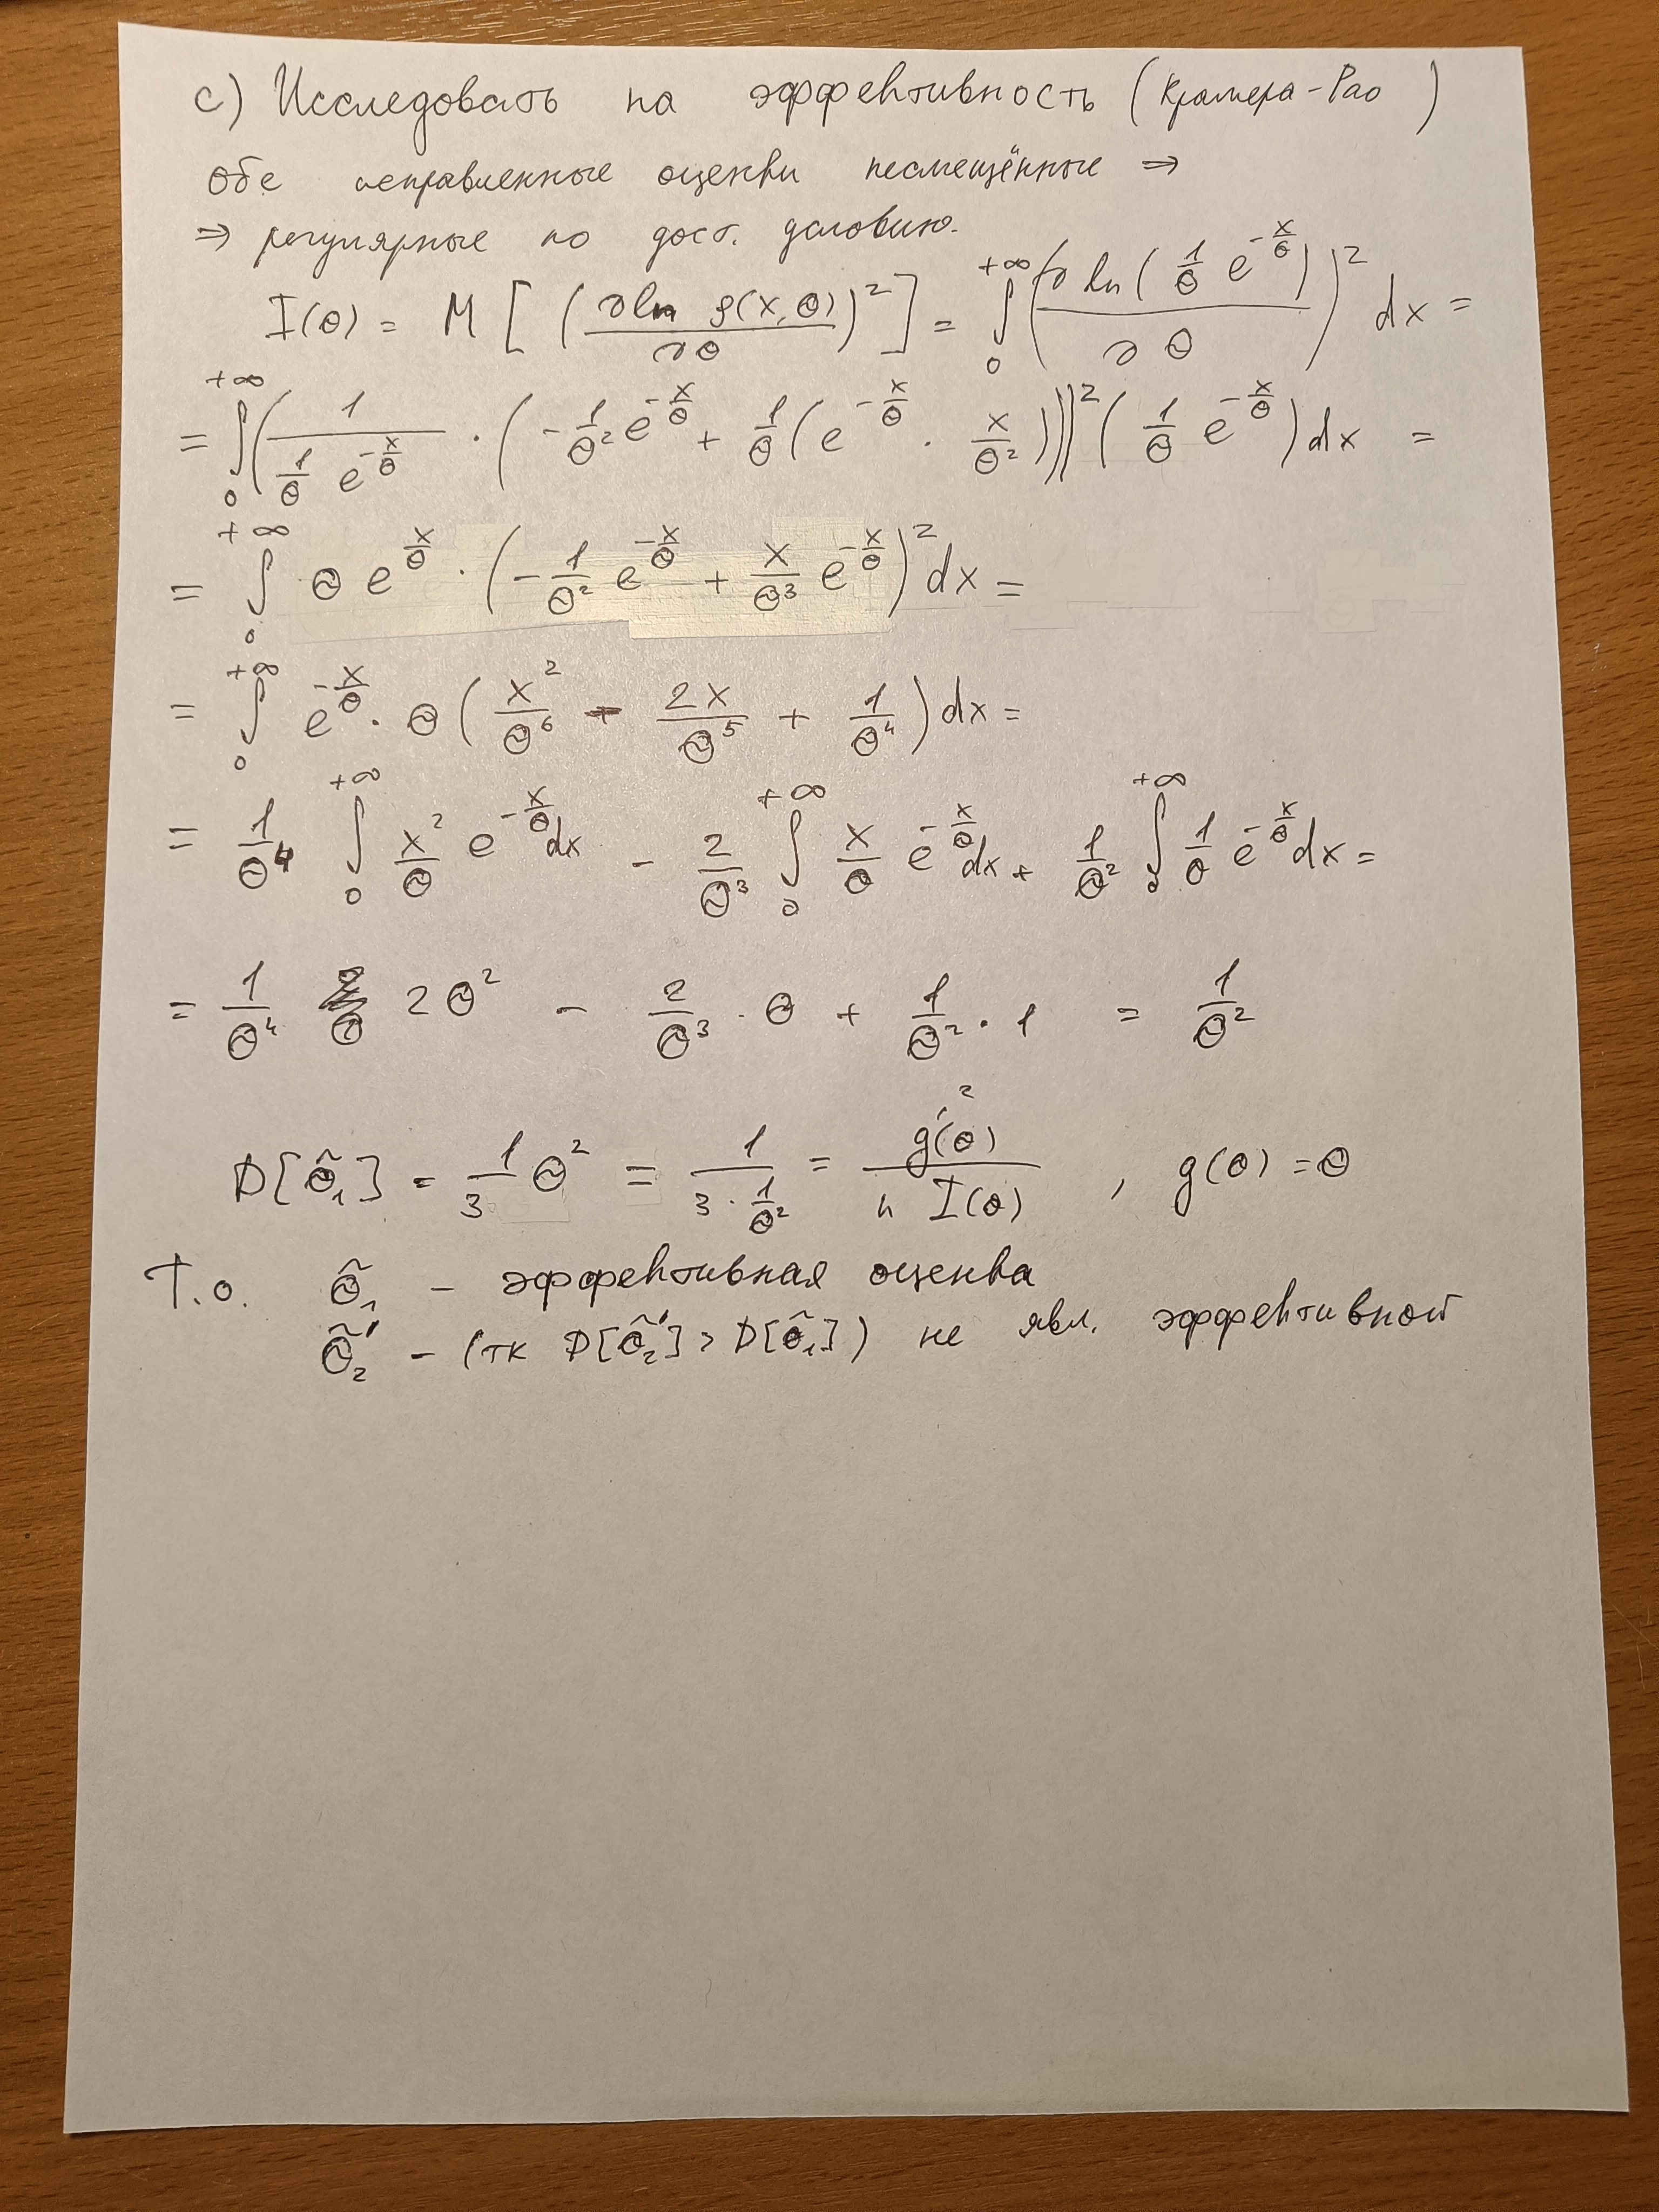 c) Исследовать на эффективность (Крамера-Рао)
Обе исправленные оценки несмещённые ⇒
⇒ регулярные по дост. условию.
I(θ) = M[(∂ln ρ(x,θ)/∂θ)²] = ∫₀^{+∞} (∂ ln(1/θ e^{-x/θ})/∂θ)² dx =
= ∫₀^{+∞} (1/(1/θ e^{-x/θ}) · (-1/θ² e^{-x/θ} + 1/θ (e^{-x/θ} · x/θ²)))² (1/θ e^{-x/θ}) dx =
= ∫₀^{+∞} θ e^{x/θ} · (-1/θ² e^{-x/θ} + x/θ³ e^{-x/θ})² dx =
= ∫₀^{+∞} e^{-x/θ} · θ (x²/θ⁶ - 2x/θ⁵ + 1/θ⁴) dx =
= 1/θ⁴ ∫₀^{+∞} x²/θ e^{-x/θ} dx - 2/θ³ ∫₀^{+∞} x/θ e^{-x/θ} dx + 1/θ² ∫₀^{+∞} 1/θ e^{-x/θ} dx =
= 1/θ⁴ 2θ² - 2/θ³ · θ + 1/θ² · 1 = 1/θ²
D[θ̃₁] = 1/3 θ² = 1/(3 · 1/θ²) = g'(θ)²/(n I(θ)) , g(θ) = θ
Т.о. θ̃₁ - эффективная оценка
θ̃₂' - (тк D[θ̃₂'] > D[θ̃₁]) не явл. эффективной